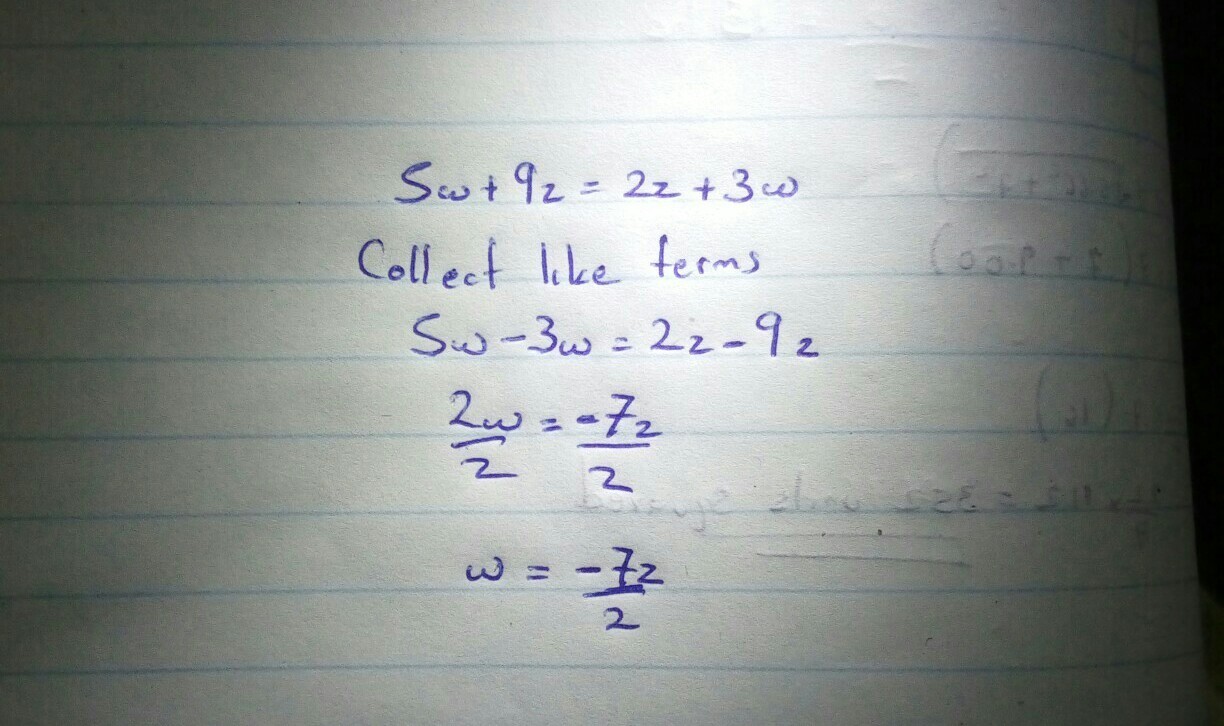 5w + 9z = 2z + 3w
Collect like terms
5w - 3w = 2z - 9z
2w = -7z
2 2
w = -7z
2